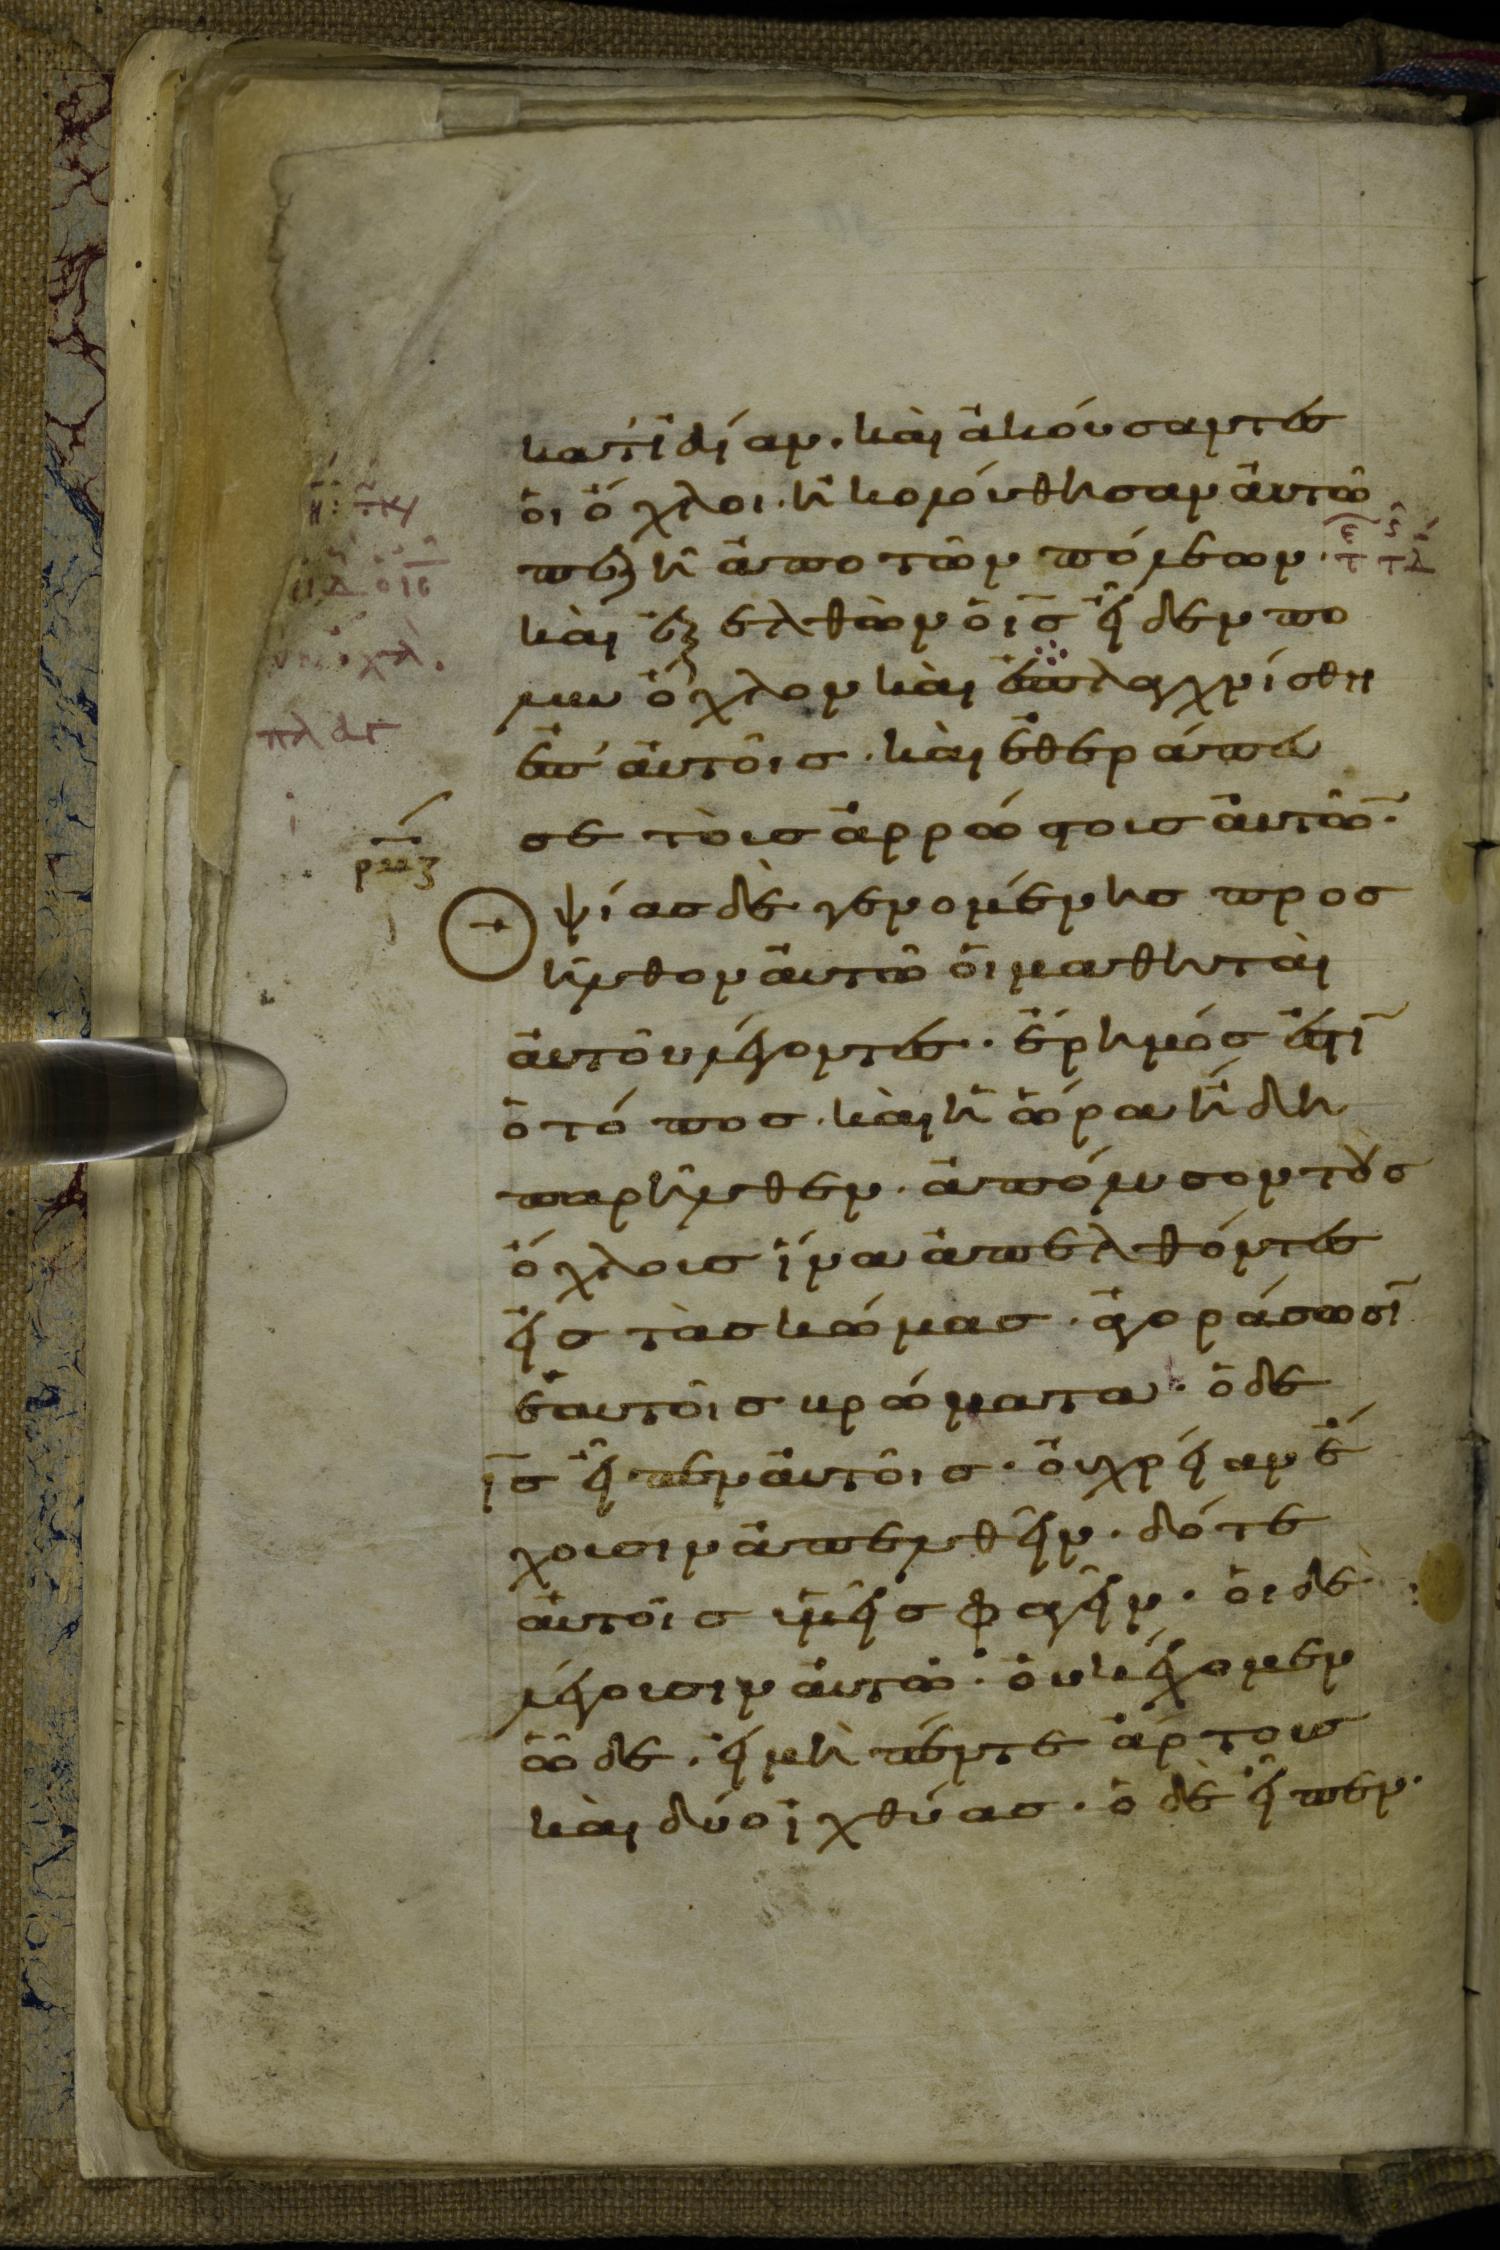 κατ ἰδίαν· καὶ ἀκούσαντες
ὁι ὄχλοι· ἠκολούθησαν ἀυτῶ
πεζῆ ἀπο τῶν πόλεων·
καὶ ἐξελθὼν ὁ ις εἶδεν πο
λυν ὄχλον καὶ ἐσπλαγχνίσθη
ἐπ' ἀυτοῖς· καὶ ἐθεράπευ
σε τοὺς ἀρρώστους ἀυτῶν·
ρμζ
Ὀψίας δὲ γενομένης προσ
ῆλθον ἀυτῶ ὁι μαθηταὶ
ἀυτοῦ λέγοντες· ἔρημός ἐστι
ὁ τόπος· καὶ ἡ ὥρα ἤδη
παρῆλθεν· ἀπόλυσον τοὺς
ὄχλους ἵνα ἀπελθόντες
εἰς τὰς κώμας· ἀγοράσωσι
ἑαυτοῖς βρώματα· ὁ δε
ις εἶπεν ἀυτοῖς· ὀυ χρείαν ἔ
χουσιν ἀπελθεῖν· δότε
ἀυτοῖς ὑμεῖς φαγεῖν· ὁι δὲ
λέγουσιν ἀυτῶ· ὀυκ ἔχομεν
ὧδε· εἰ μὴ πέντε ἄρτους
καὶ δύο ἰχθύας· ὁ δὲ εἶπεν·